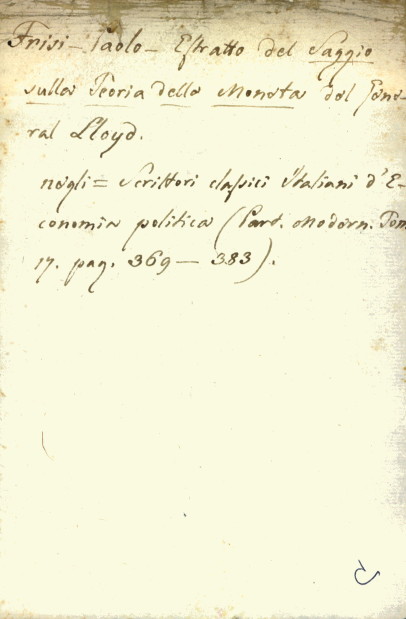 Frisi - Paolo - Estratto del Saggio
sulla Teoria della Moneta del Gene-
ral Lloyd.
negli = Scrittori classici Italiani d'E-
conomia politica (Part. Modern. Tom.
17. pag. 369 — 383).